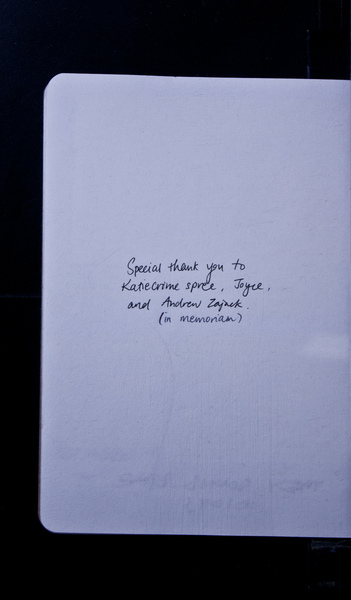 Special thank you to
Katiecrime spree, Joyce,
and Andrew Zajack.
(in memoriam)